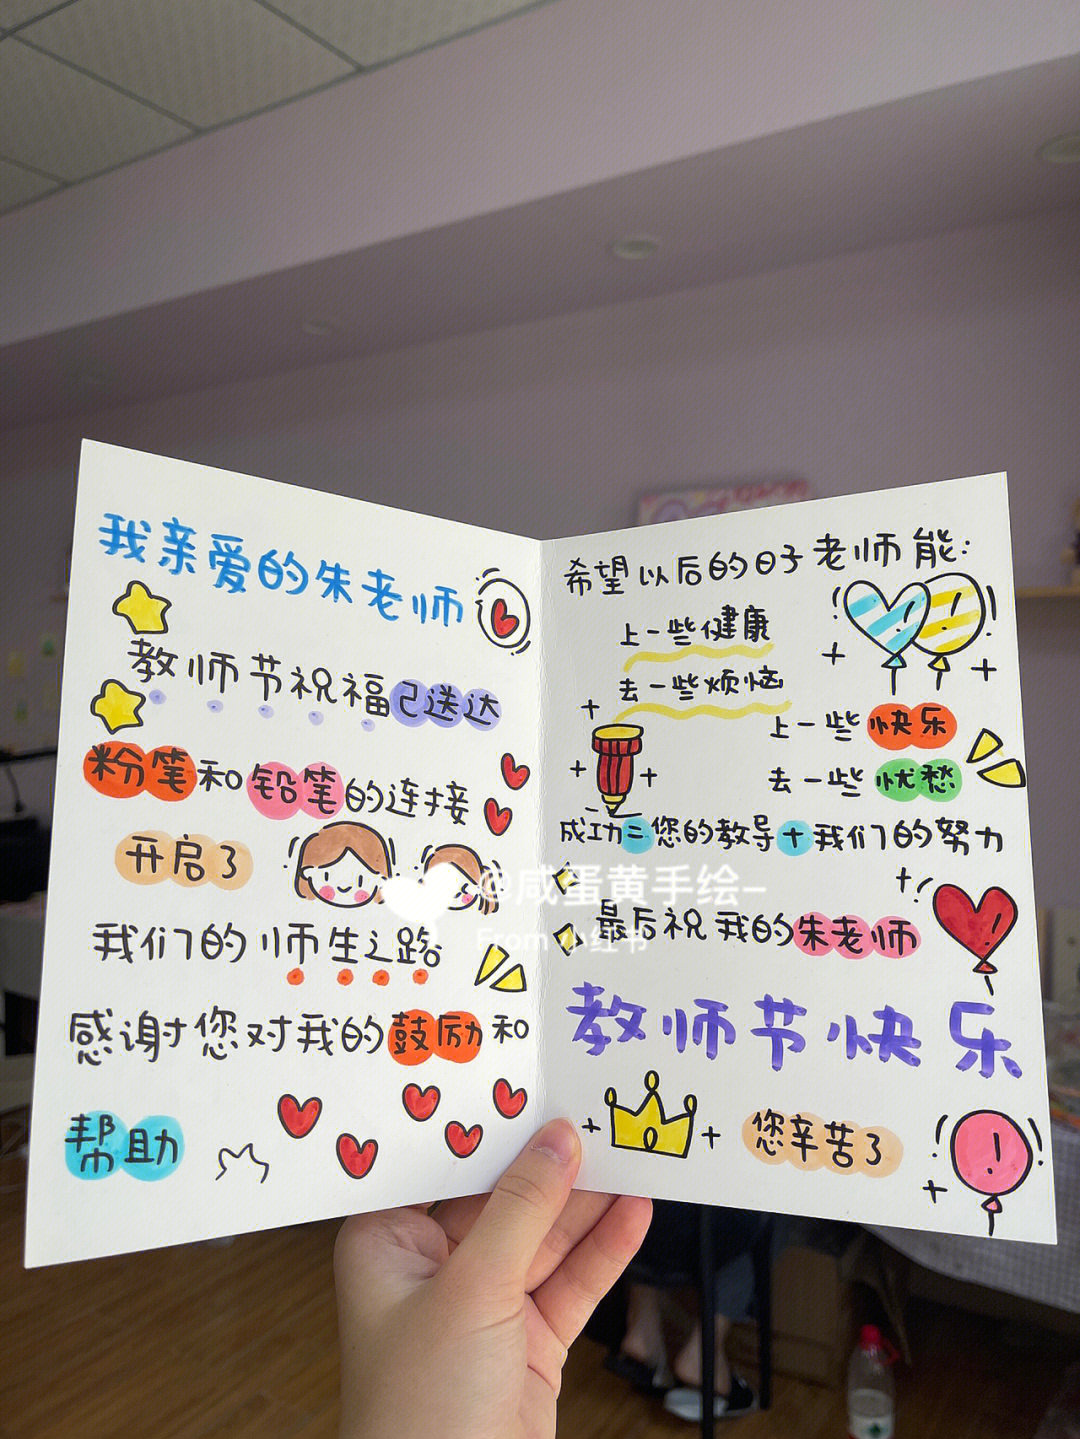 我亲爱的朱老师
教师节祝福已送达
粉笔和铅笔的连接
开启了
我们的师生之路
感谢您对我的鼓励和
帮助
希望以后的日子老师能:
上一些健康
去一些烦恼
上一些快乐
去一些忧愁
成功=您的教导+我们的努力
最后祝我的朱老师
教师节快乐
您辛苦了
@咸蛋黄手绘-
From 小红书